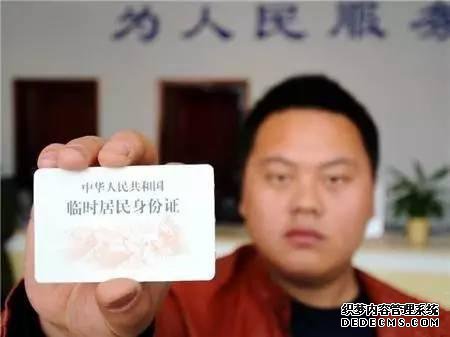 为人民服务
中华人民共和国
临时居民身份证
织梦内容管理系统
DEDECMS.COM